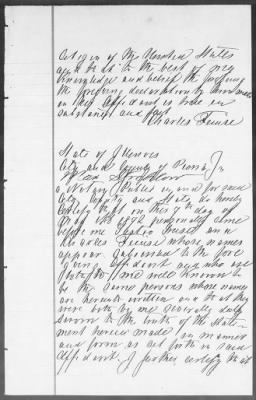 Citizen of the United States
and that to the best of my
knowledge and belief the
the foregoing declaration by
in said Affidavit is true in
substance and fact
Charles
State of Illinois
City and County of Peoria
a Notary Public in and for said
City County and State do hereby
certify that on this 7 day of
May 1878 personally came
before me and
Charles whose names
appear subscribed to the fore
going affidavit and who are
both to me well known to
be the same persons whose names
are hereunto written and that they
were both by me severally duly
sworn to the truth of the State-
ment herein made in manner
and form as set forth in said
Affidavit I further certify that